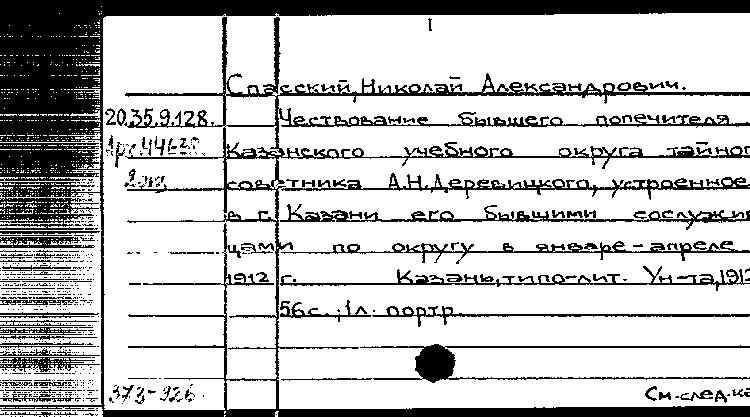 I
Спасский, Николай Александрович.
20.35.9.128. Чествование бывшего попечителя
Казанского учебного округа тайног
советника А.Н.Деревицкого, устроенное
в г. Казани его бывшими сослужив
цами по округу в январе-апреле
1912 г. Казань, типо-лит. Ун-та, 1912
56с.; 1л. портр.
373-926
См.след.ка